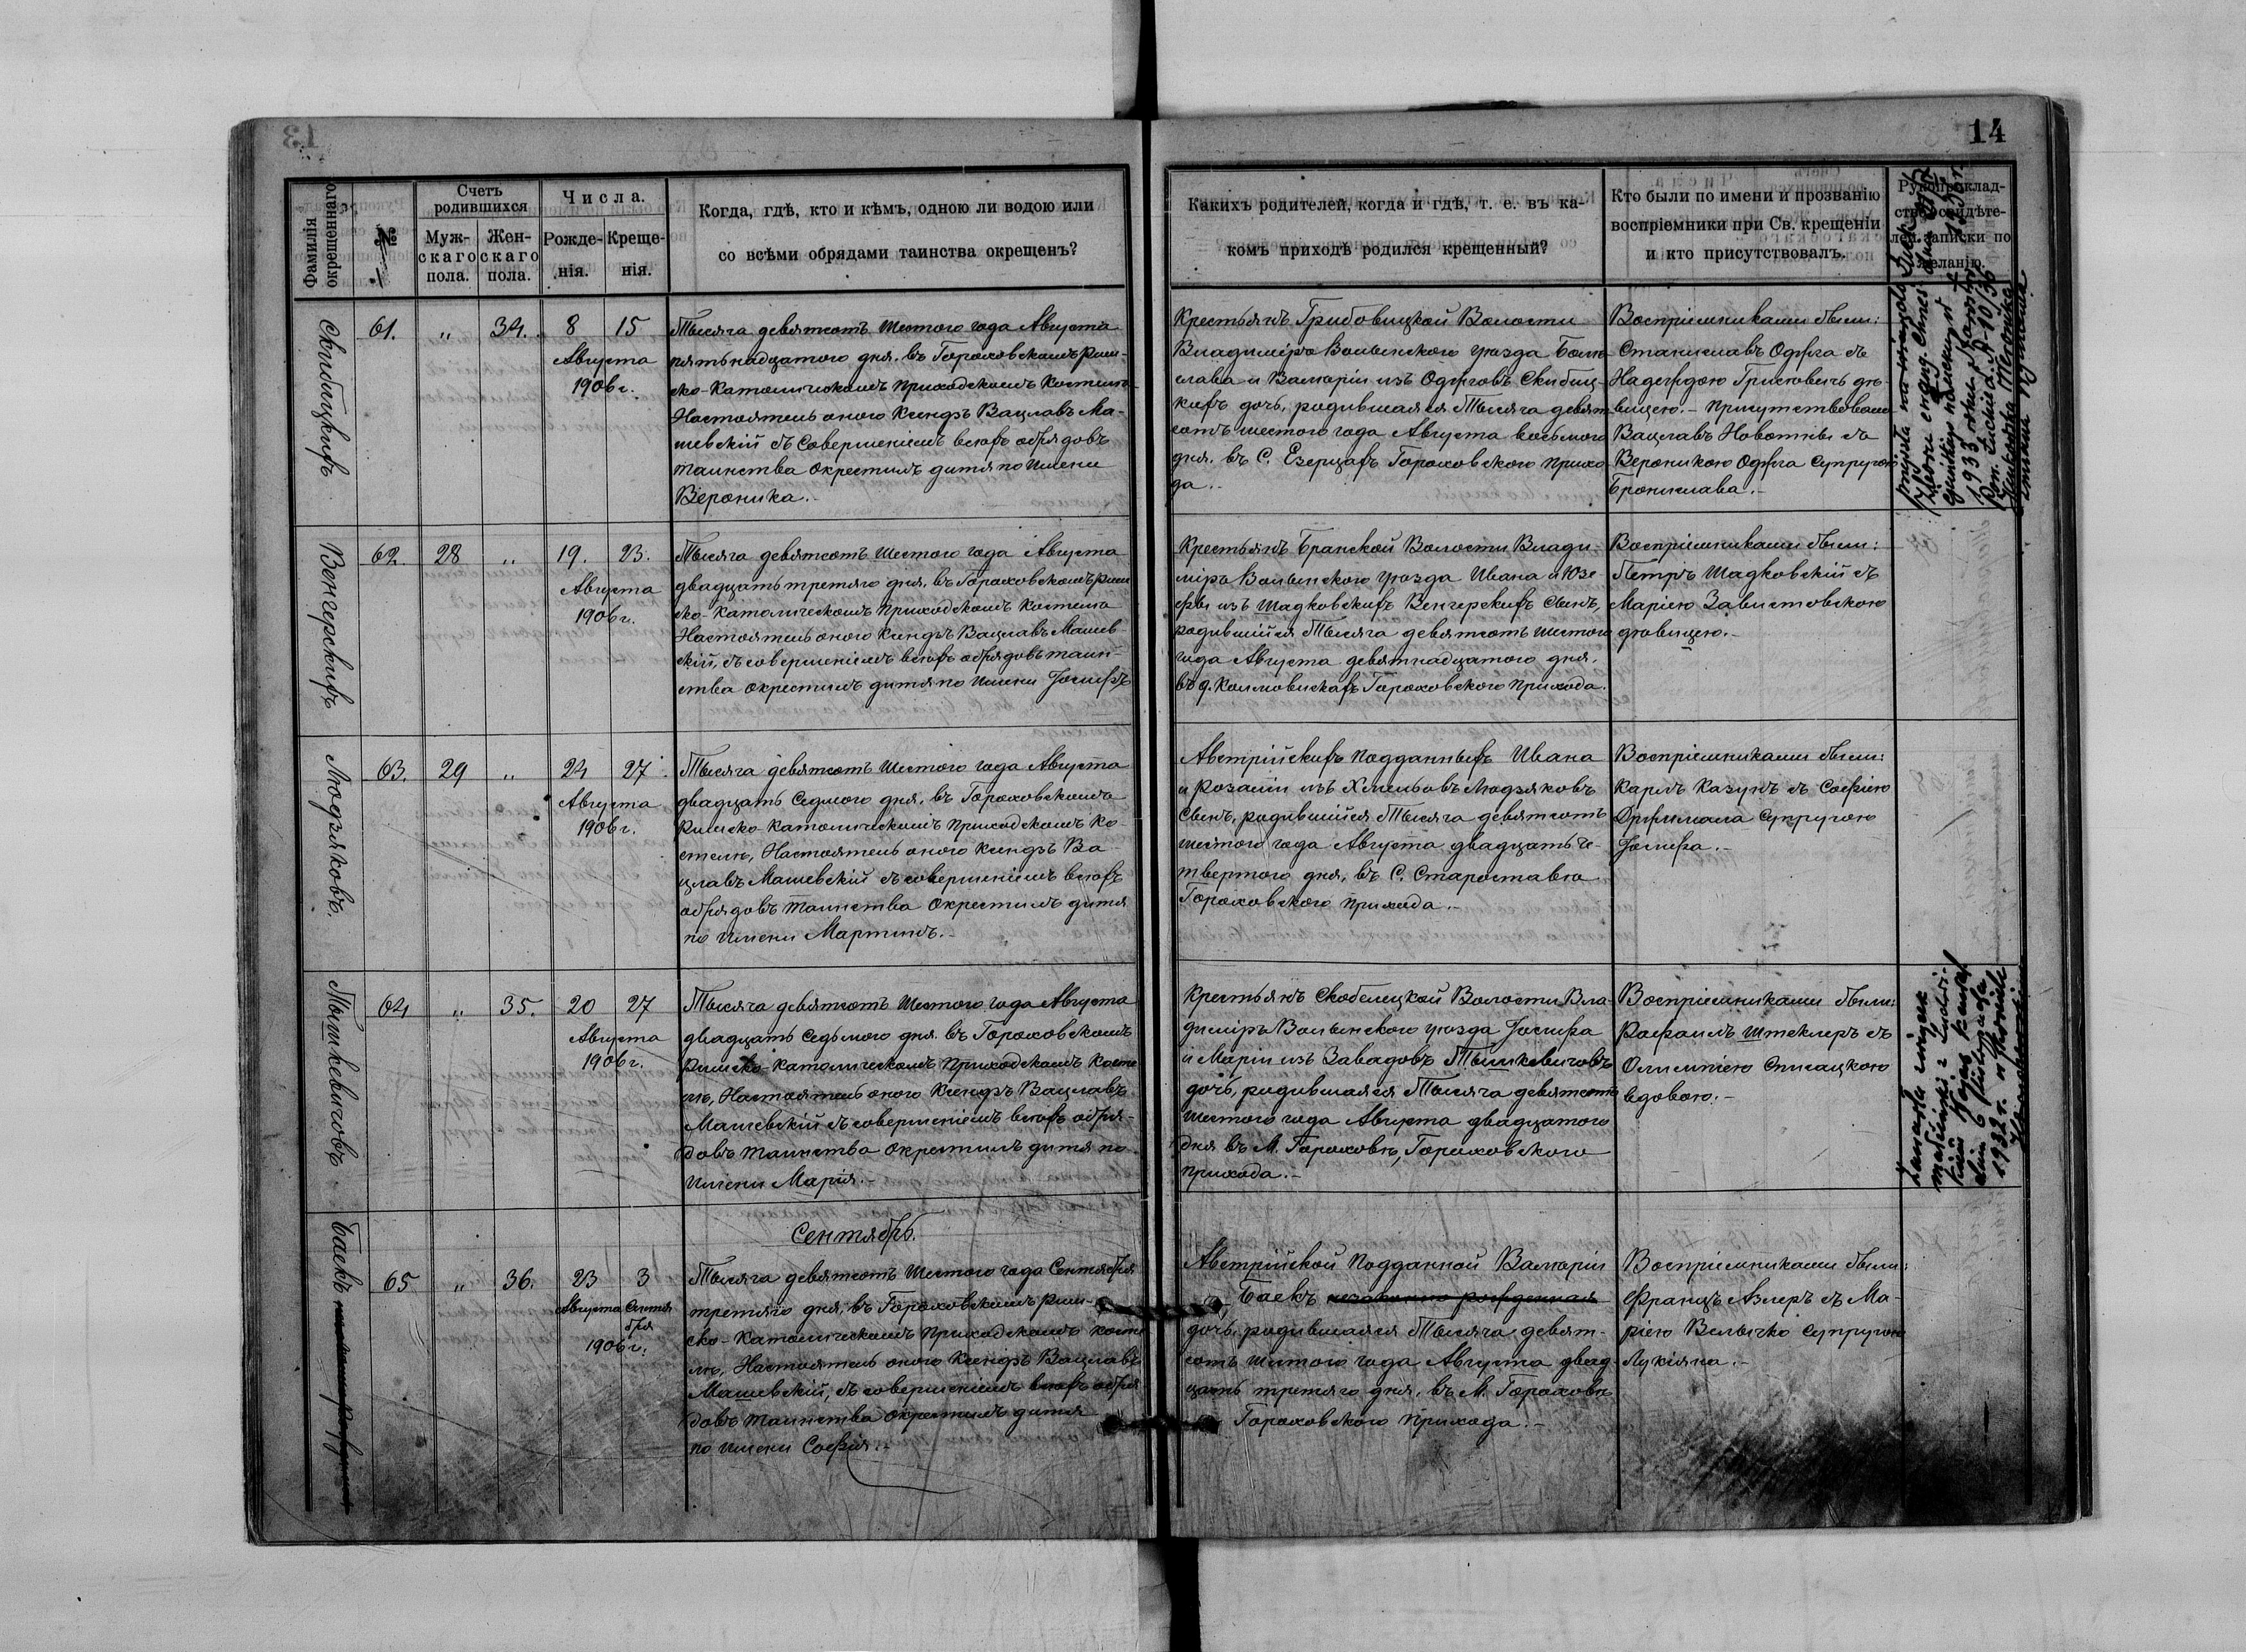 14
Фамилія окрещеннаго.
№
Счетъ родившихся
Муж-
скаго
пола.
Жен-
скаго
пола.
Числа.
Рожде-
нія.
Креще-
нія.
Когда, гдѣ, кто и кѣмъ, одною ли водою или
со всѣми обрядами таинства окрещенъ?
Какихъ родителей, когда и гдѣ, т. е. въ ка-
комъ приходѣ родился крещенный?
Кто были по имени и прозванію
воспріемники при Св. крещеніи
и кто присутствовалъ.
Рукоприклад-
ство свидѣте-
лей записки по
желанію.
Скибицкихъ
61. " 34. 8 15
Августа
1906 г.
Тысяча девятьсотъ шестого года Августа
пятьнадцатого дня, въ Гороховскомъ Рим-
ско-Католическомъ Приходскомъ Костелѣ
Настоятель оного Ксендзъ Вацлавъ Ма-
шевскій съ совершеніемъ всѣхъ обрядовъ
таинства окрестилъ дитя по имени
Вероника.-
Крестьянъ Грибовицкой Волости
Владиміръ Волынского уѣзда Боле-
слава и Валеріи изъ Оджговъ Скибиц-
кихъ дочь, родившаяся Тысяча девять-
сотъ шестого года Августа восьмого
дня, въ С. Езерцахъ Гороховского прихо-
да.-
Воспріемниками были:
Станиславъ Оджга съ
Надеждою Грисювичъ дѣ-
вицею.- Присутствовали
Вацлавъ Новотны съ
Вероникою Оджга супругою
Бронислава.-
1933
Венгерскихъ
62. 28 " 19. 23.
Августа
1906 г.
Тысяча девятьсотъ шестого года Августа
двадцать третяго дня, въ Гороховскомъ Рим-
ско-Католическомъ Приходскомъ Костелѣ
Настоятель оного Ксендзъ Вацлавъ Машев-
скій, съ совершеніемъ всѣхъ обрядовъ таин-
ства окрестилъ дитя по имени Іосифъ
Крестьянъ Бранской Волости Влади-
міръ Волынского уѣзда Ивана и Юзе-
фы изъ Шадковскихъ Венгерскихъ сынъ,
родившійся Тысяча девятьсотъ шестого
года Августа девятнадцатого дня,
въ д. Гороховского прихода.
Воспріемниками были:
Петръ Шадковскій съ
Маріею Завистовскою
дѣвицею.-
Людзяковъ.
63. 29 " 24 27
Августа
1906 г.
Тысяча девятьсотъ шестого года Августа
двадцать седмого дня, въ Гороховскомъ
Римско-Католическомъ Приходскомъ Ко-
стелѣ, Настоятель оного Ксендзъ Ва-
цлавъ Машевскій съ совершеніемъ всѣхъ
обрядовъ таинства окрестилъ дитя
по имени Мартинъ.-
Австрійскихъ Подданныхъ Ивана
и Розаліи изъ Хмельовъ Людзяковъ
сынъ, родившійся Тысяча девятьсотъ
шестого года Августа двадцать че-
твертого дня, въ С. Староставѣ
Гороховского прихода.-
Воспріемниками были:
Карлъ Казунъ съ Софіею
супругою
Іосифа.-
Тышкевичовъ
64 " 35. 20 27
Августа
1906 г.
Тысяча девятьсотъ шестого года Августа
двадцать седьмого дня въ Гороховскомъ
Римско-Католическомъ Приходскомъ Косте-
лѣ, Настоятель оного Ксендзъ Вацлавъ
Машевскій съ совершеніемъ всѣхъ обря-
довъ таинства окрестилъ дитя по
имени Марія.-
Крестьянъ Скобелецкой Волости Вла-
диміръ Волынского уѣзда Іосифа
и Маріи изъ Завадовъ Тышкевичовъ
дочь, родившаяся Тысяча девятьсотъ
шестого года Августа двадцатого
дня въ М. Гороховѣ, Гороховского
прихода.-
Воспріемниками были:
Рафаилъ Штеклеръ съ
Олимпіею Списацкою
вдовою.-
Zawarła związek
małżeński z
1932 r.
Сентябрь.
Баекъ
65 " 36. 23 3
Августа Сентя-
бря
1906 г.
Тысяча девятьсотъ шестого года Сентября
третяго дня, въ Гороховскомъ Рим-
ско-Католическомъ Приходскомъ Косте-
лѣ, Настоятель оного Ксендзъ Вацлавъ
Машевскій, съ совершеніемъ всѣхъ обря-
довъ таинства окрестилъ дитя
по имени Софія.-
Австрійской Подданной Валеріи
Баекъ незаконно рожденная
дочь, родившаяся Тысяча девять-
сотъ шестого года Августа двад-
цать третяго дня, въ М. Гороховѣ
Гороховского прихода.-
Воспріемниками были:
Францъ Азлеръ съ Ма-
ріею Величко супругою
Лукіяна.-